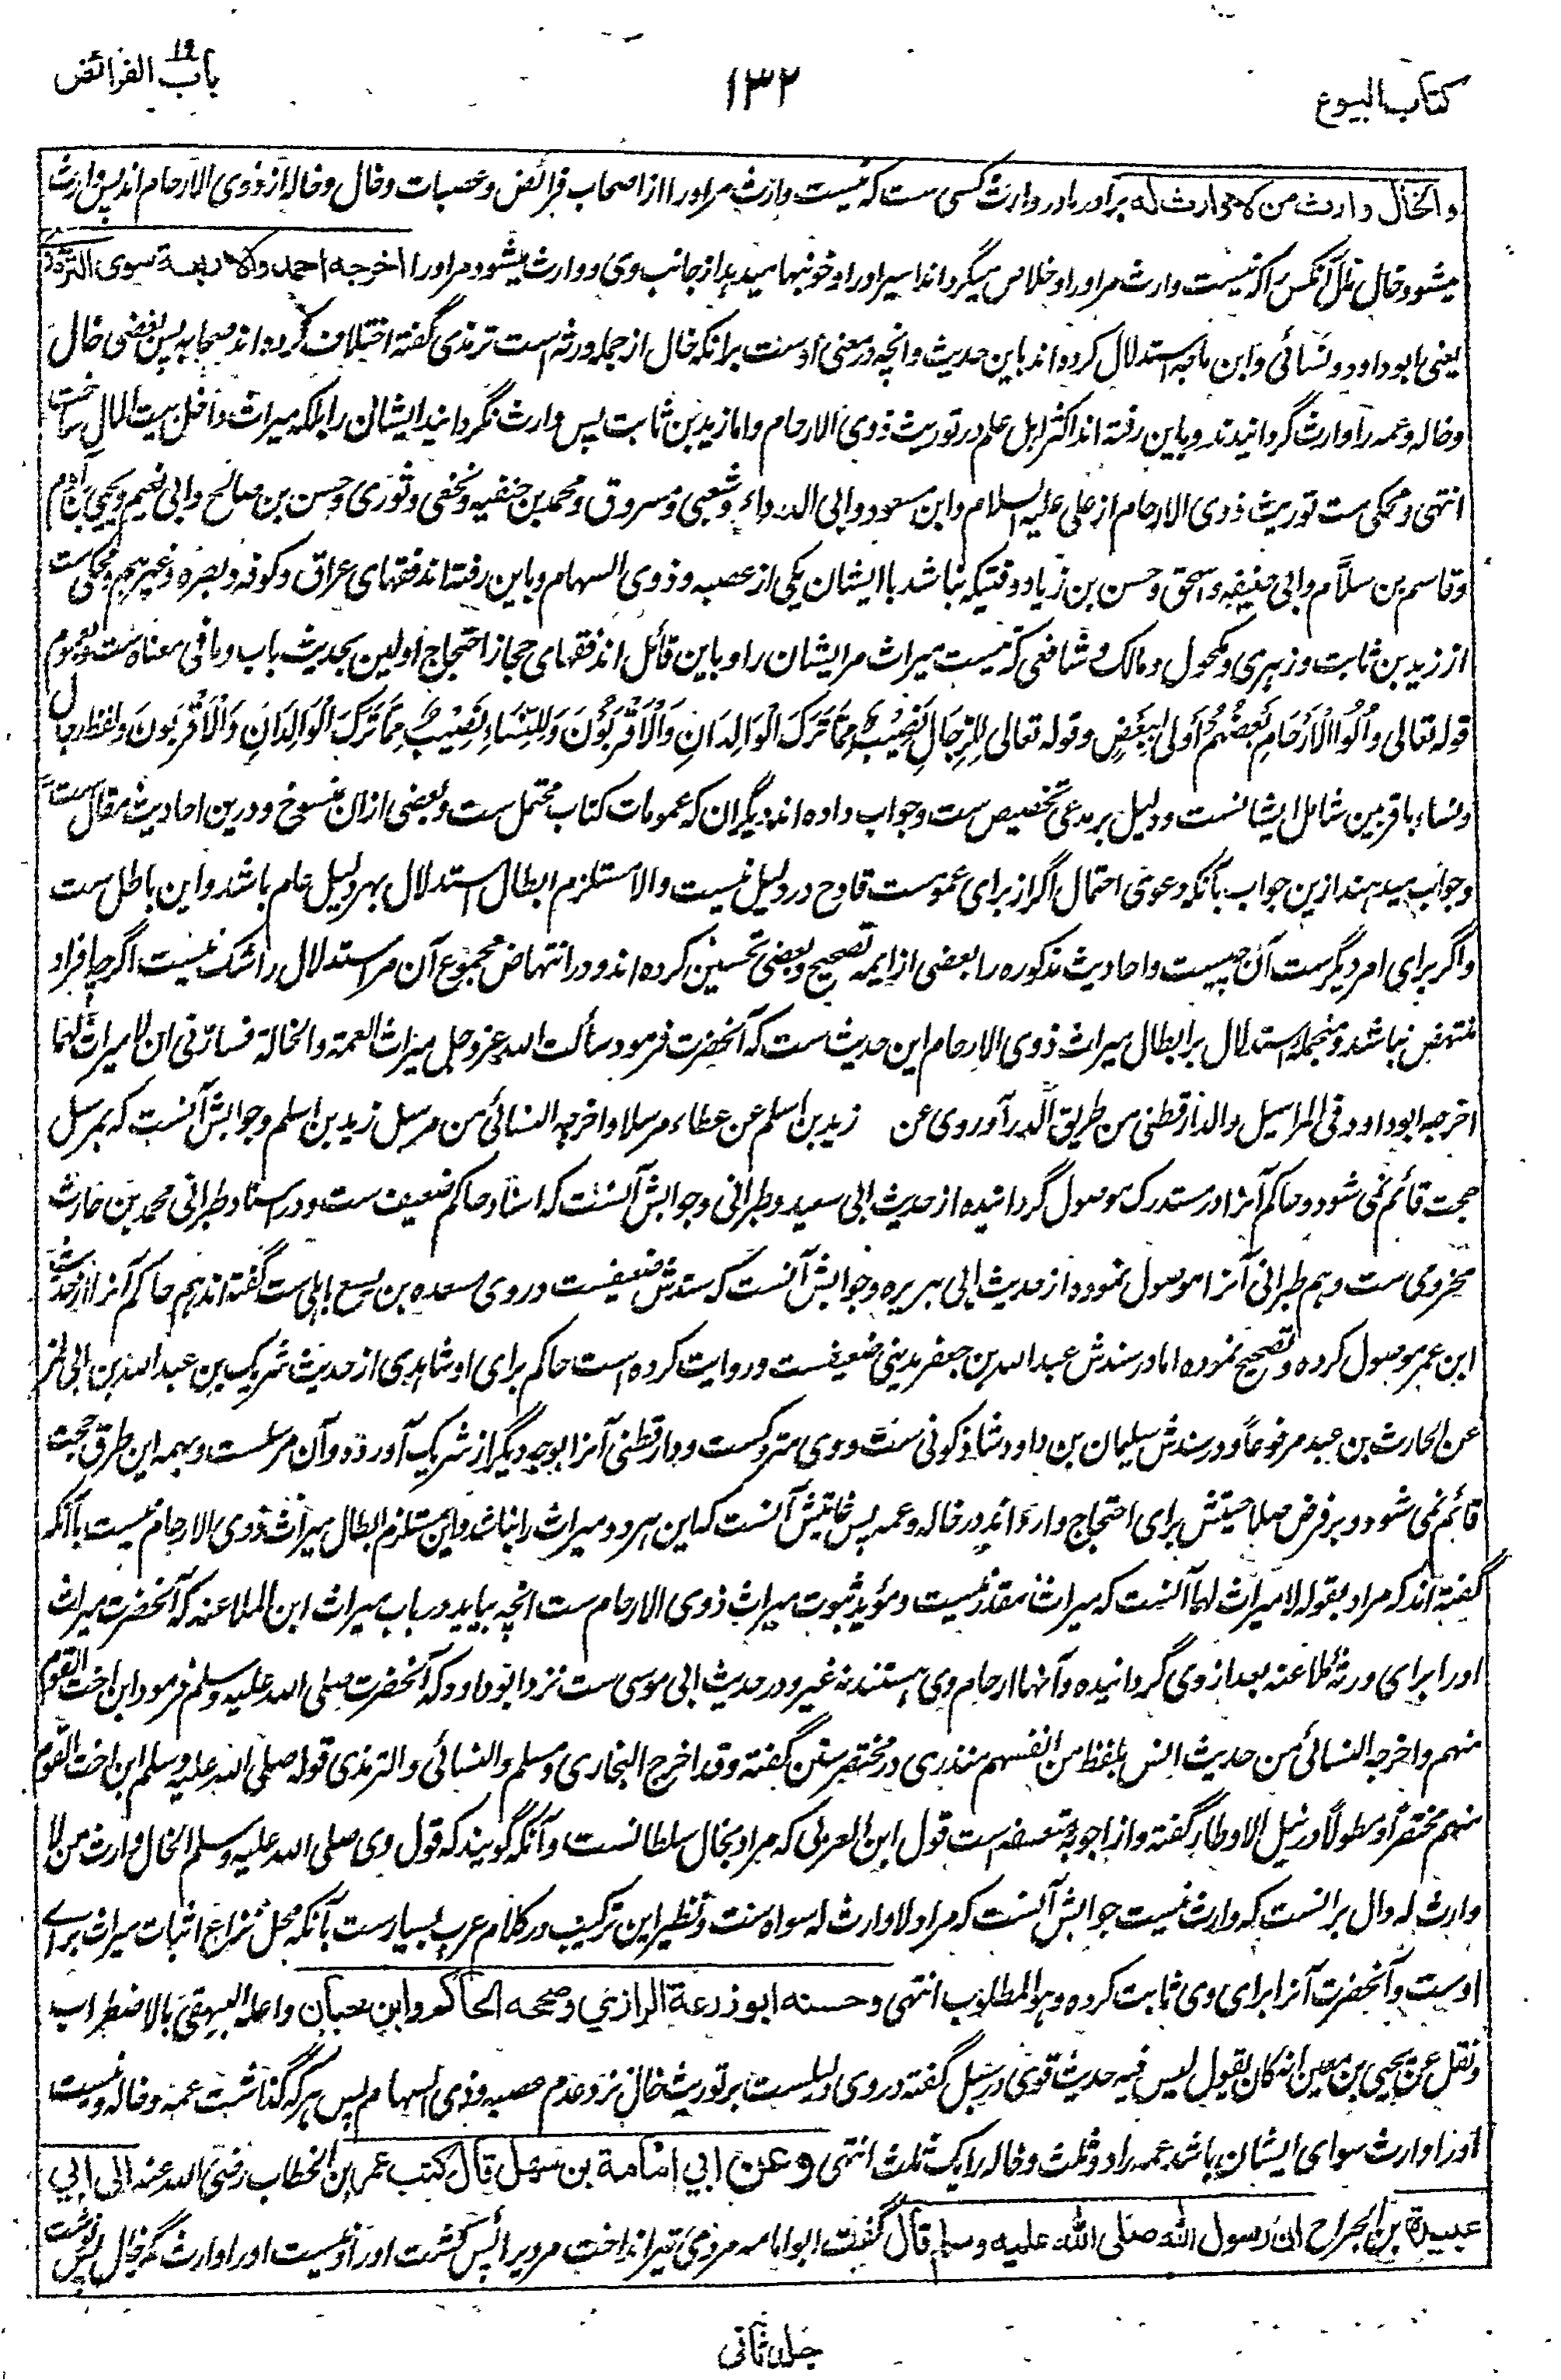 كتاب البيوع
١٣٢
باب الفرائض
والخال وارث من لا وارث له برادر مادر وارث کسی ست که نیست وارث مر اورا از اصحاب فرائض و عصبات وخال وخاله از ذوی الارحام اند پس وارث
میشود خال آنکس را که نیست وارث مر اورا و خلاص میگرداند اسیر اورا و خونبها میدهد از جانب وی و وارث میشود مر اورا اخرجه احمد والاربعة سوى الترمذي
یعنی ابوداود و نسائی وابن ماجه استدلال کرده اند باین حدیث وانچه در معنی اوست برانکه خال از جمله ورثه است ترمذی گفته اختلاف کرده اند صحابه پس بعضی خال
وخاله وعمه را وارث گردانیدند وباین رفته اند اکثر اهل علم در توریث ذوی الارحام واما زید بن ثابت پس وارث نگردانید ایشان را بلکه میراث داخل بیت المال ساخت
انتهی ومحکی ست توریث ذوی الارحام از علی علیه السلام وابن مسعود وابی الدرداء وشعبی ومسروق ومحمد بن حنفیه ونخعی وثوری وحسن بن صالح وابی نعیم ویحیی بن آدم
وقاسم بن سلام وابی حنیفه واسحق وحسن بن زیاد وقتیکه نباشد با ایشان یکی از عصبه وذوی السهام وباین رفته اند فقهای عراق وکوفه وبصره وغیرهم ومحکی ست
از زید بن ثابت وزهری ومکحول ومالک وشافعی که نیست میراث مر ایشان را وباین قائل اند فقهای حجاز احتجاج اولین بحدیث باب وما فی معناه ست وبعموم
قوله تعالی وَأُولُوا الْأَرْحَامِ بَعْضُهُمْ أَوْلَى بِبَعْضٍ وقوله تعالی لِلرِّجَالِ نَصِيبٌ مِمَّا تَرَكَ الْوَالِدَانِ وَالْأَقْرَبُونَ وَلِلنِّسَاءِ نَصِيبٌ مِمَّا تَرَكَ الْوَالِدَانِ وَالْأَقْرَبُونَ ولفظ رجال
ونساء باقربین شامل ایشانست ودلیل بر مدعی تخصیص ست وجواب داده اند دیگران که عمومات کتاب محتمل ست وبعضی ازان منسوخ ودرین احادیث مقال ست
وجواب میدهند ازین جواب بآنکه دعوی احتمال اگر از برای عمومست قادح در دلیل نیست والا مستلزم ابطال استدلال بهر دلیل عام باشد واین باطل ست
واگر برای امر دیگرست آن چیست واحادیث مذکوره را بعضی از ایمه تصحیح وبعضی تحسین کرده اند ودر انتهاض مجموع آن مر استدلال را شک نیست اگرچه افراد
منتهض نباشد ومنجمله استدلال بر ابطال میراث ذوی الارحام این حدیث ست که آنحضرت فرمود سألت الله عز وجل میراث العمة والخالة فسارّنی ان لا میراث لهما
اخرجه ابوداود فی المراسیل والدارقطنی من طریق الدرآوردی عن زید بن اسلم عن عطاء مرسلا واخرجه النسائی من مرسل زید بن اسلم وجوابش آنست که بمرسل
حجت قائم نمی شود وحاکم آنرا در مستدرک موصول گردانیده از حدیث ابی سعید وطبرانی وجوابش آنست که اسناد حاکم ضعیف ست ودر اسناد طبرانی محمد بن حارث
مخزومی ست وهم طبرانی آنرا موصول نموده از حدیث ابی هریره وجوابش آنست که سندش ضعیفست ودر وی مسعده بن یسع باهلی ست گفته اند هم حاکم آنرا از حدیث
ابن عمر موصول کرده وتصحیح نموده اما در سندش عبدالله بن جعفر مدینی ضعیفست وروایت کرده است حاکم برای او شاهدی از حدیث شریک بن عبدالله بن ابی نمر
عن الحارث بن عبد مرفوعاً ودر سندش سلیمان بن داود شاذکونی ست و وی متروکست ودارقطنی آنرا بوجه دیگر از شریک آورده وآن مرسلست وبهمه این طرق حجت
قائم نمی شود وبر فرض صلاحیتش برای احتجاج وارد اند در خاله وعمه پس غایتش آنست که این هر دو میراث را نباشد واین مستلزم ابطال میراث ذوی الارحام نیست با آنکه
گفته اند که مراد بقوله لا میراث لهما آنست که میراث مقدر نیست ومؤید ثبوت میراث ذوی الارحام ست انچه بیاید در باب میراث ابن الملاعنه که آنحضرت میراث
اورا برای ورثه ملاعنه بعد از وی گردانیده وآنها ارحام وی هستند نه غیر ودر حدیث ابی موسی ست نزد ابوداود که آنحضرت صلی الله علیه وسلم فرمود ابن اخت القوم
منهم واخرجه النسائی من حدیث انس بلفظ من انفسهم منذری در مختصر سنن گفته وقد اخرج البخاری ومسلم والنسائی والترمذی قوله صلی الله علیه وسلم ابن اخت القوم
منهم مختصراً ومطولاً در نیل الاوطار گفته واز اجوبه متعسفه است قول ابن العربی که مراد بخال سلطانست وآنکه گویند که قول وی صلی الله علیه وسلم الخال وارث من لا
وارث له دال برانست که وارث نیست جوابش آنست که مراد لا وارث له سواه ست ونظیر این ترکیب در کلام عرب بسیارست بآنکه محل نزاع اثبات میراث برای
اوست وآنحضرت آنرا برای وی ثابت کرده وهو المطلوب انتهی وحسنه ابو زرعة الرازي وصححه الحاكم وابن حبان واعله البيهقي بالاضطراب
ونقل عن یحیی بن معین انه کان یقول لیس فیه حدیث قوی در سبل گفته در وی دلیلست بر توریث خال نزد عدم عصبه وذوی السهام پس هر که گذاشت عمه وخاله ونیست
اورا وارث سوای ایشان باشد عمه را دو ثلث وخاله را یک ثلث انتهی وعن ابي امامة بن سهل قال كتب عمر بن الخطاب رضي الله عنه الى ابي
عبيدة بن الجراح ان رسول الله صلى الله عليه وسلم قال گفت ابوامامه مردی تیر انداخت مردیرا پس کشت اورا ونیست اورا وارث مگر خال پس نوشت
جلد ثانی